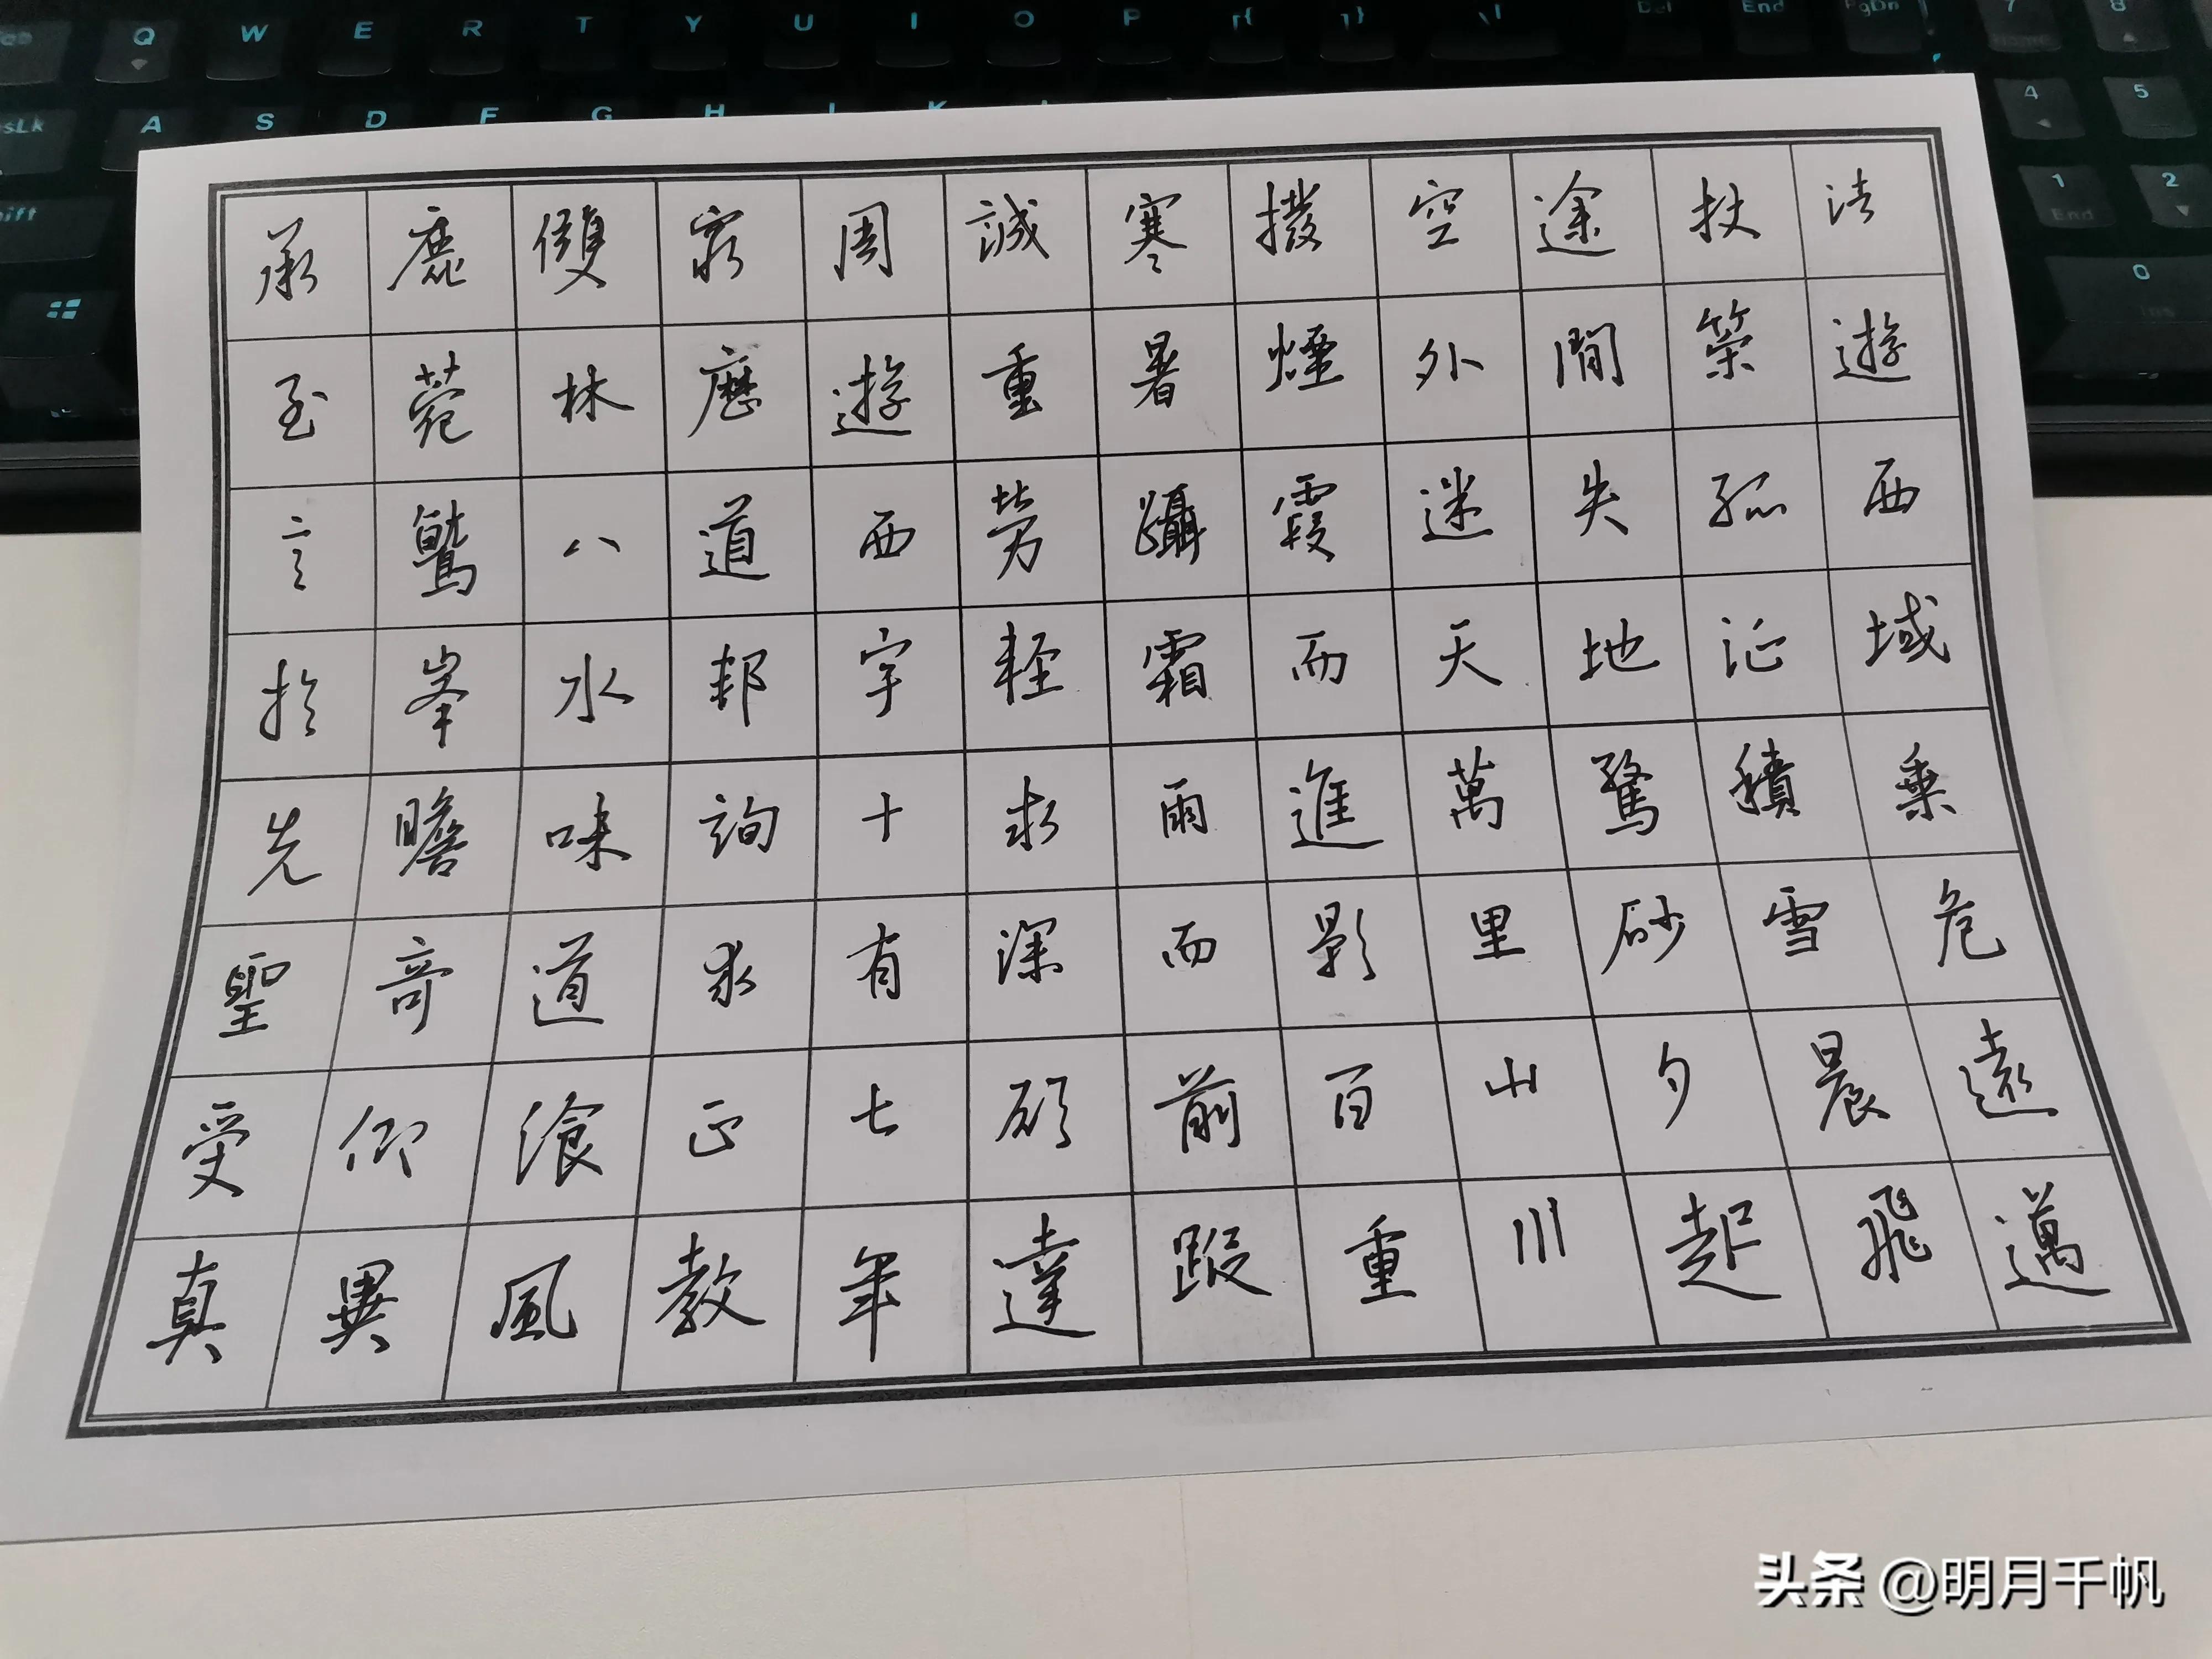 Q W E R T Y U I O P
PgDn
End
Del
A S D F G H
4 5
1 2
0
End
往遊西域乘危遠邁
杖策孤征積雪晨飛
途間失地驚砂夕起
空外迷天萬里山川
撥煙霞而進影百重
寒暑躡霜雨而前蹤
誠重勞輕求深願達
周遊西宇十有七年
窮歷道邦詢求正教
雙林八水味道飡風
鹿菀鷲峯瞻奇仰異
承至言於先聖受真
头条 @明月千帆